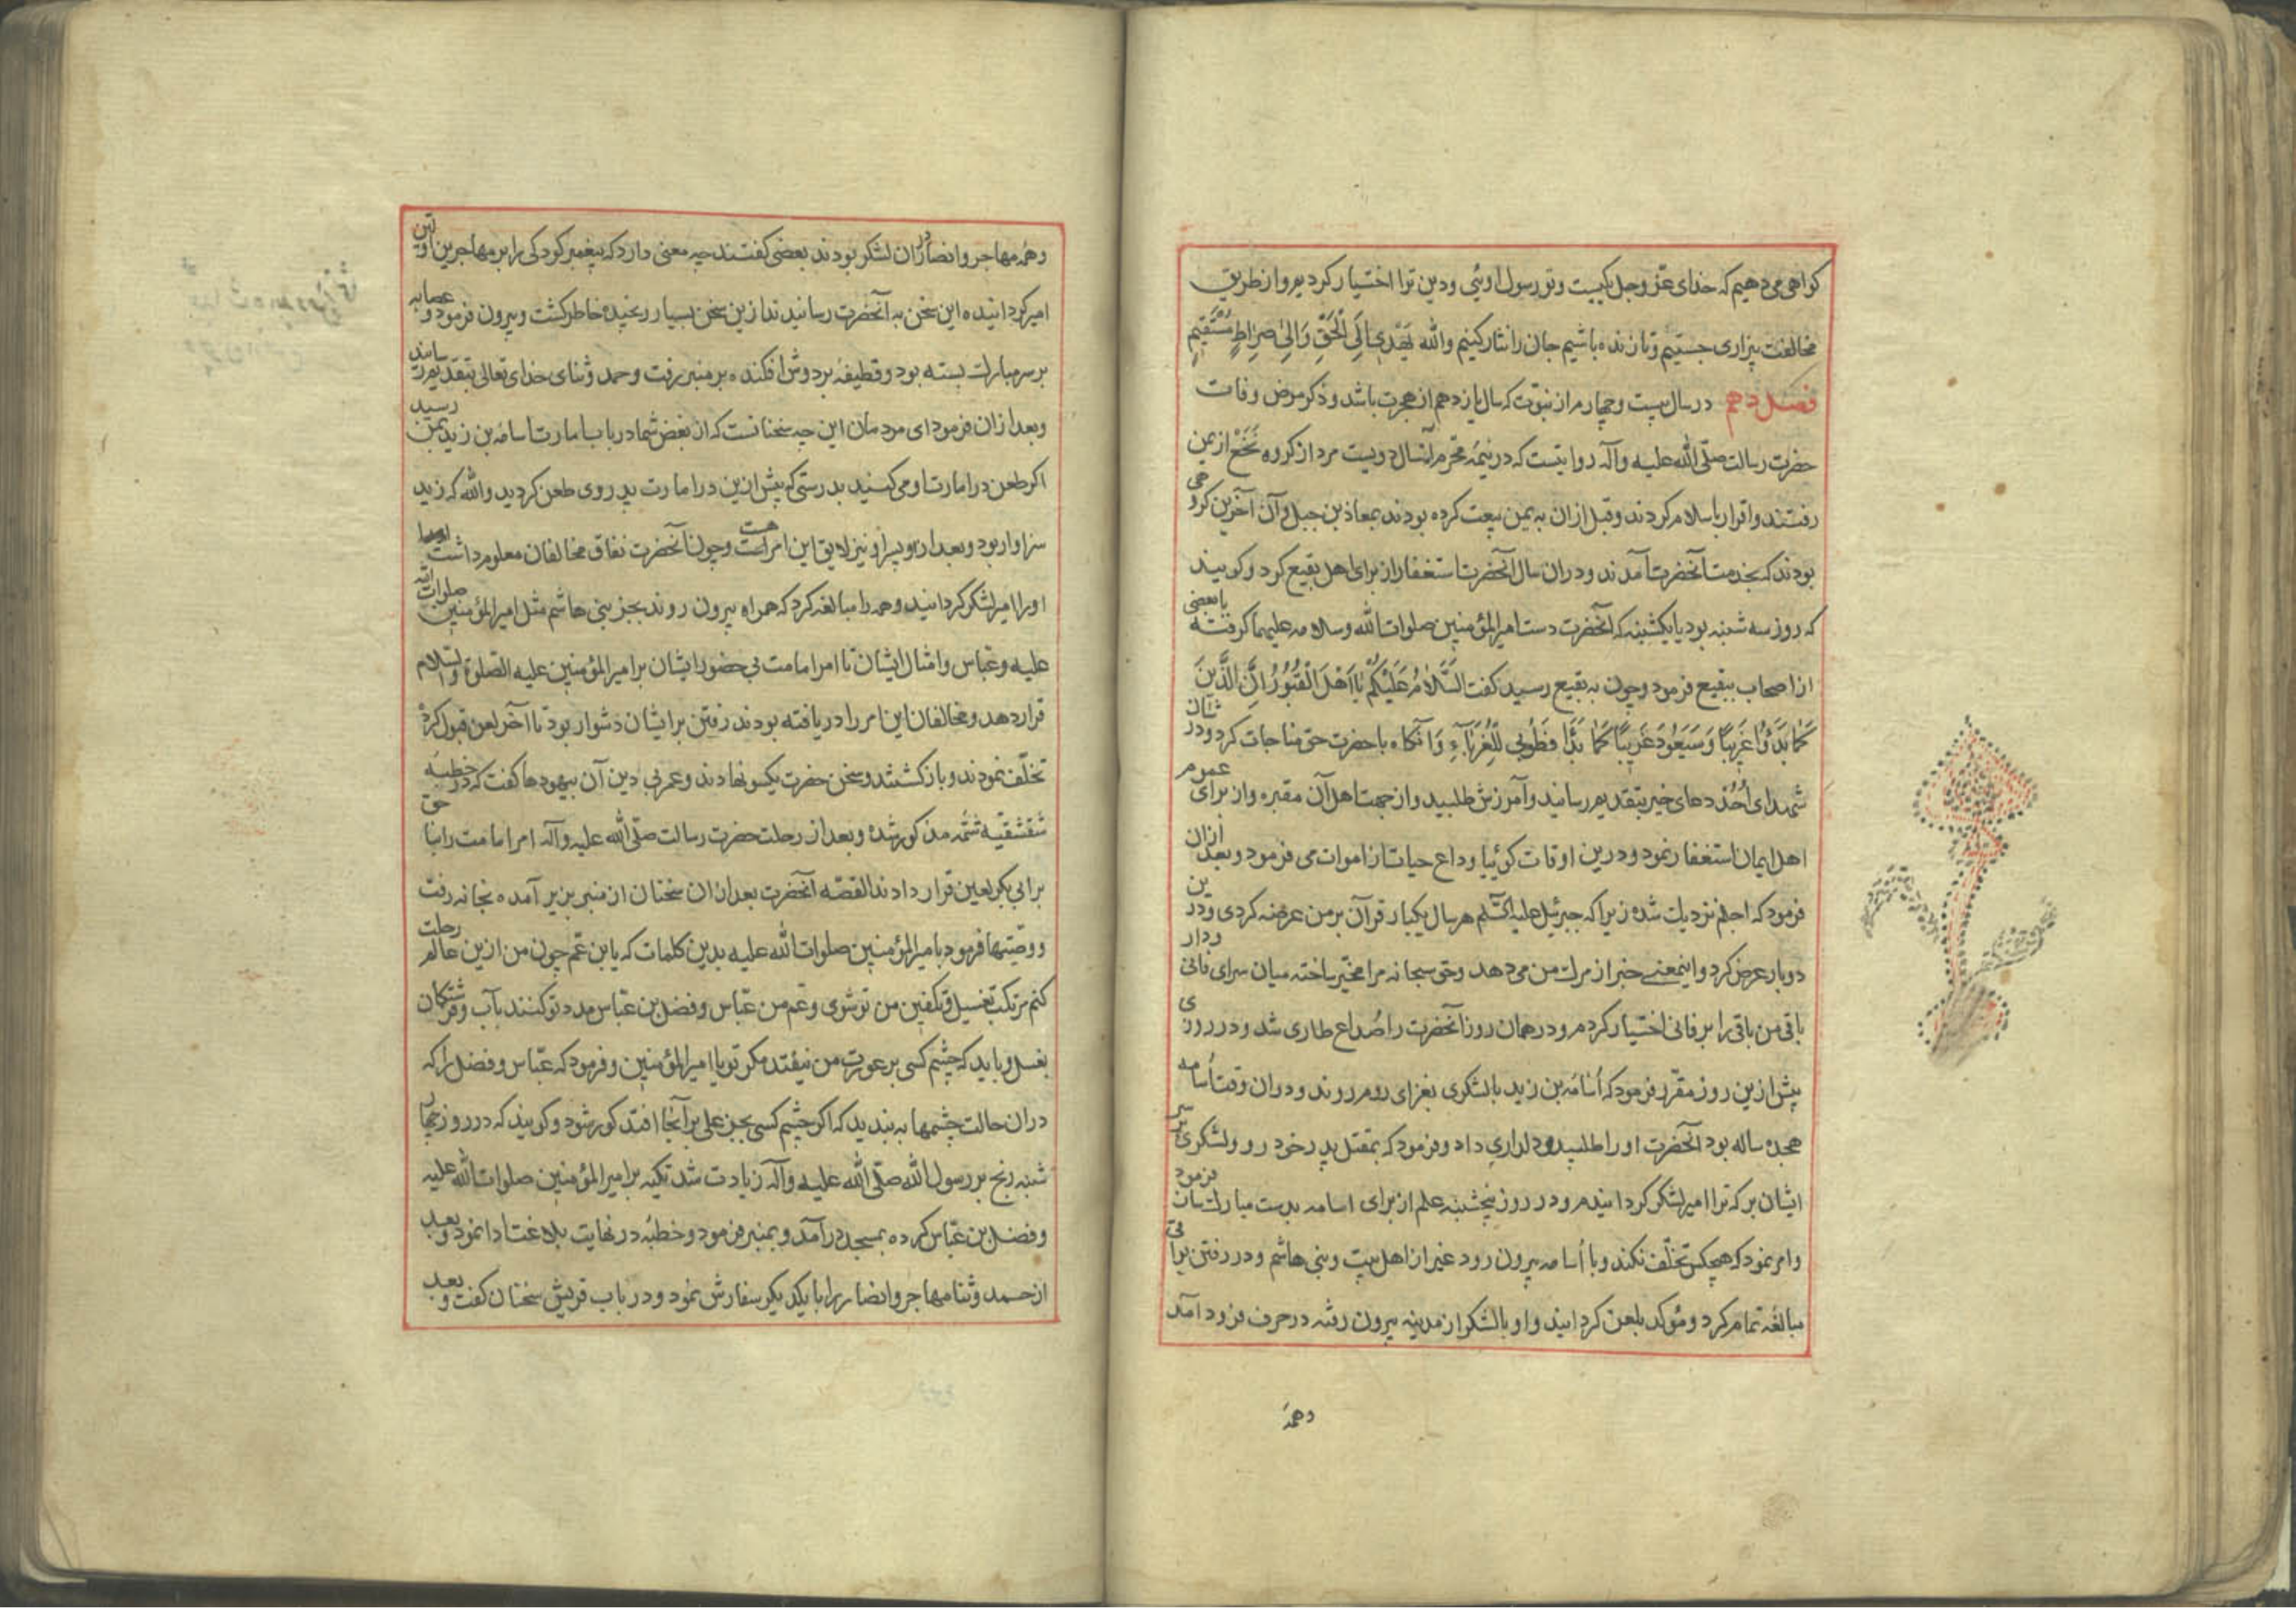 کواهی می دهیم که خدای عزّ وجل یکیست وتو رسول اوئی ودین ترا اختیار کردیم واز طریق
مخالفت بیزاری جستیم وتا زنده باشیم جان را نثار کنیم والله یَهْدی اِلَی الْحَقِّ وَاِلیٰ صِراطٍ مُسْتَقیمٍ
فصل دهم در سال بیست وچهارم از نبوّت که سال یازدهم از هجرت باشد وذکر مرض وفات
حضرت رسالت صلّی الله علیه وآله روایتست که در نیمهٔ محرّم آنسال دویست مرد از کروه نَخَعْ از یمن
رفتند واقرار باسلام کردند وقبل از آن به یمن بیعت کرده بودند بمعاذ بن جبل وآن آخرین کروهی
بودند که بخدمت آنحضرت آمدند ودران سال آنحضرت استغفار از برای اهل بقیع کرد وکویند
که روز سه شنبه بود یا یکشنبه که آنحضرت دست امیرالمؤمنین صلوات الله وسلامه علیهما کرفته با بعضی
از اصحاب ببقیع فرمود وچون به بقیع رسید کفت اَلسَّلامُ عَلَیْکُمْ یا اَهْلَ الْقُبُورِ اِنَّ الَّذینَ
کَما بَدَؤُا غَریبًا وَسَیَعُودَ غَریبًا کَما بَدَؤُا فَطُوبی لِلْغُرَباءِ وآنکاه با حضرت حق مناجات کرد ودر شان
شهدای اُحُد دعای خیر بتقدیم رسانید وآمرزش طلبید واز جهت اهل آن مقبره واز برای عموم
اهل ایمان استغفار نمود ودرین اوقات کوئیا وداع حیات از اموات می فرمود وبعد ازان
فرمود که اجلم نزدیک شده زیرا که جبرئیل علیه السّلم هر سال یکبار قرآن بر من عرضه کردی ودرین
دوبار عرض کرد واینمعنی خبر از مرک من می دهد وحق سبحانه مرا مخیّر ساخته میان سرای فانی ودار
باقی من باقی را بر فانی اختیار کردم ودر همان روز آنحضرت را صُداع طاری شد ودر روزی
پیش ازین روز مقرّر فرمود که اُسامَه بن زید با لشکری بغزای روم روند ودران وقت اُسامه
هجده ساله بود آنحضرت اورا طلبید ودلداری داد وفرمود که بمقتل پدر خود رو ولشکری بر سر
ایشان بر که ترا امیر لشکر کردانیدم ودر روز پنجشنبه علم از برای اسامه بدست مبارک سان فرمود
وامر نمود که هیچکس تخلّف نکند وبا اُسامه بیرون رود غیر از اهل بیت وبنی هاشم ودر رفتن
مبالغه تمام کرد ومؤکد بلعن کردانید واو با لشکر از مدینه بیرون رفته در جرف فرود آمد
وهمه
وهمه مهاجر وانصار دران لشکر بودند بعضی کفتند چه معنی دارد که پیغمبر کودکی را بر مهاجرین اوّلین
امیر کردانیده این سخن به آنحضرت رسانیدند ازین سخن بسیار رنجیده خاطر کشت وبیرون فرمود وعصابه
بر سر مبارک بسته بود وقطیفه بر دوش افکنده بر منبر رفت وحمد وثنای خدای تعالی بتقدیم رسانید
وبعد ازان فرمود ای مردمان این چه سخنانست که از بعض شما در باب امارت اسامه بن زید بمن رسید
اکر طعن در امارت او می کنید بدرستی که پیش ازین در امارت پدر وی طعن کردید والله که زید
سزاوار بود وبعد ازو پسر او نیز لایق این امر هست وچون آنحضرت نفاق مخالفان معلوم داشت
اورا امیر لشکر کردانید وهمه را مبالغه کرد که همراه بیرون روند بجز بنی هاشم مثل امیرالمؤمنین صلوات الله
علیه وعبّاس وامثال ایشان تا امر امامت بی حضور ایشان بر امیرالمؤمنین علیه الصّلوة والسّلام
قرار دهد ومخالفان این امر را دریافته بودند رفتن بر ایشان دشوار بود تا آخر لعن قبول کرده
تخلّف نمودند وباز کشتند وسخن حضرت یکسو نهادند وعمر بی دین آن بیهودها کفت که در خطبهٔ
شقشقیّه شمّه مذکور شد وبعد از رحلت حضرت رسالت صلّی الله علیه وآله امر امامت را بنا حق
بر ابی بکر لعین قرار دادند القصّه آنحضرت بعد ازان سخنان از منبر بزیر آمده بخانه رفت
ووصیّتها فرمود با امیرالمؤمنین صلوات الله علیه بدین کلمات که یا ابن عم چون من ازین عالم رحلت
کنم مرتکب تغسیل وتکفین من تو شوی وعم من عبّاس وفضل بن عبّاس مدد تو کنند بآب وفرشتکان
بغسل وباید که چشم کسی بر عورت من نیفتد مکر تو یا امیرالمؤمنین وفرمود که عبّاس وفضل را که
دران حالت چشمها به بندید که اکر چشم کسی بجز علی بر آنجا افتد کور شود وکویند که در روز چهار
شنبه رنج بر رسول الله صلّی الله علیه وآله زیادت شد تکیه بر امیرالمؤمنین صلوات الله علیه
وفضل بن عبّاس کرده بمسجد درآمد وبمنبر فرمود وخطبه در نهایت بلاغت ادا نمود وبعد
از حمد وثنا مهاجر وانصار را با یکدیکر سفارش نمود ودر باب قریش سخنان کفت وبعد